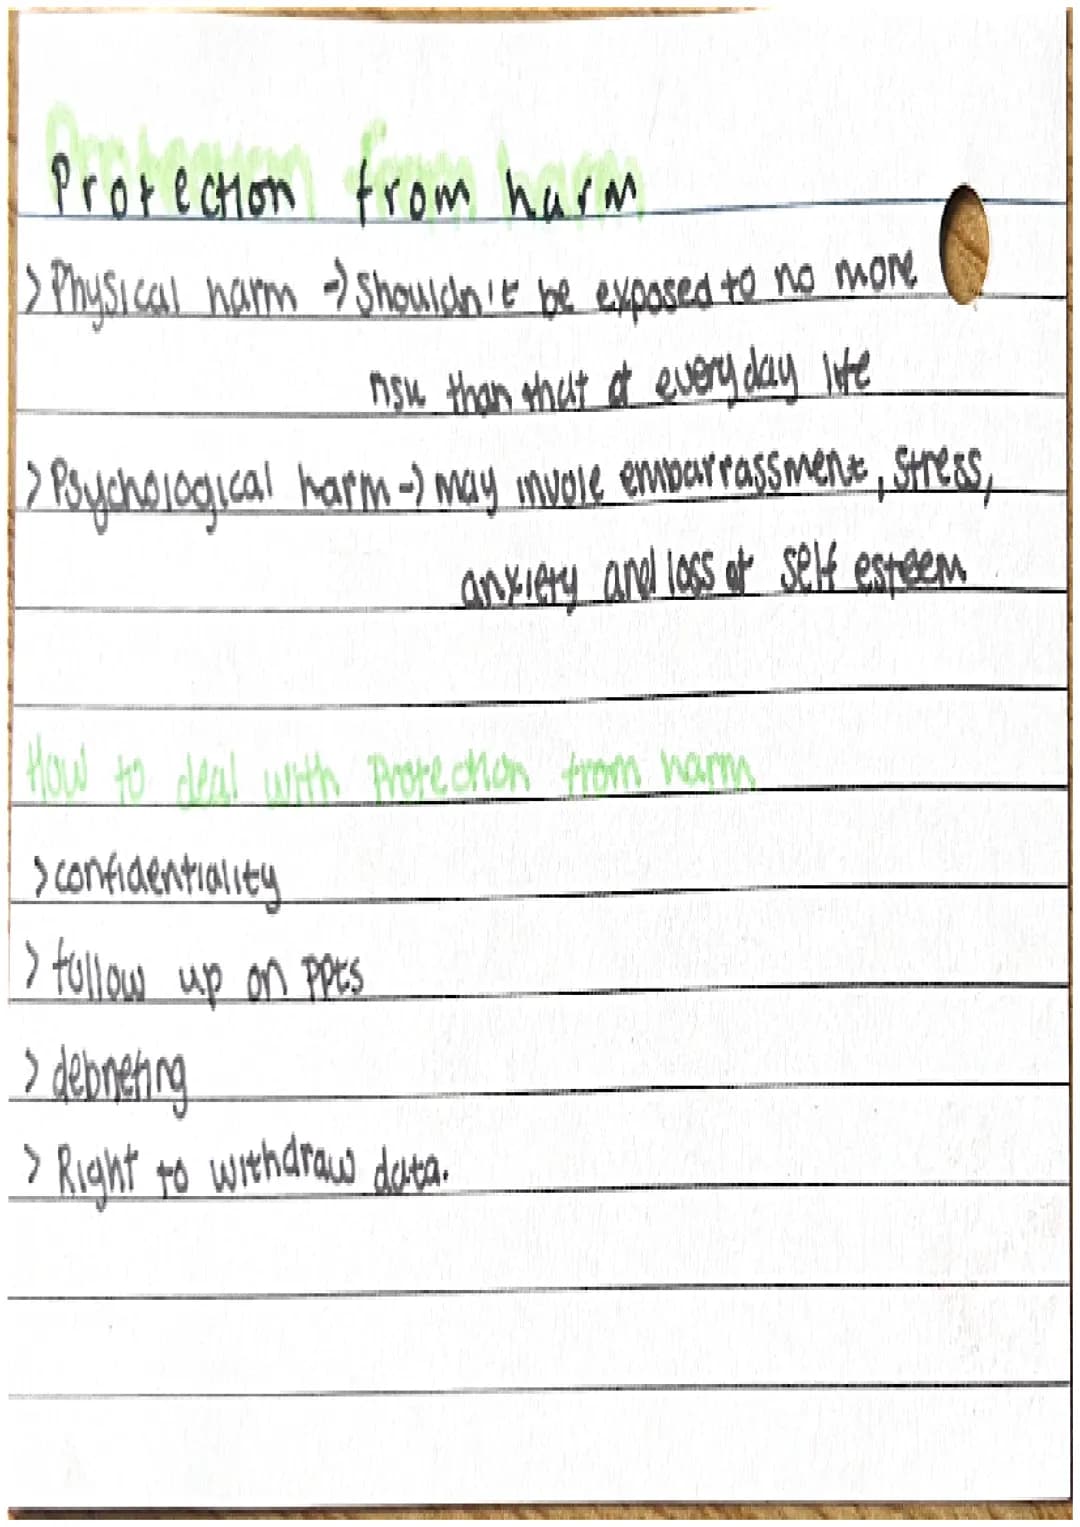 Protection from harm
> Physical harm → Shouldn't be exposed to no more
risk than that of everyday life
> Psychological harm → may invole embarrassment, stress,
anxiety and loss of self esteem
How to deal with Protection from harm
> confidentiality
> follow up on PPts
> debriefing
> Right to withdraw data.